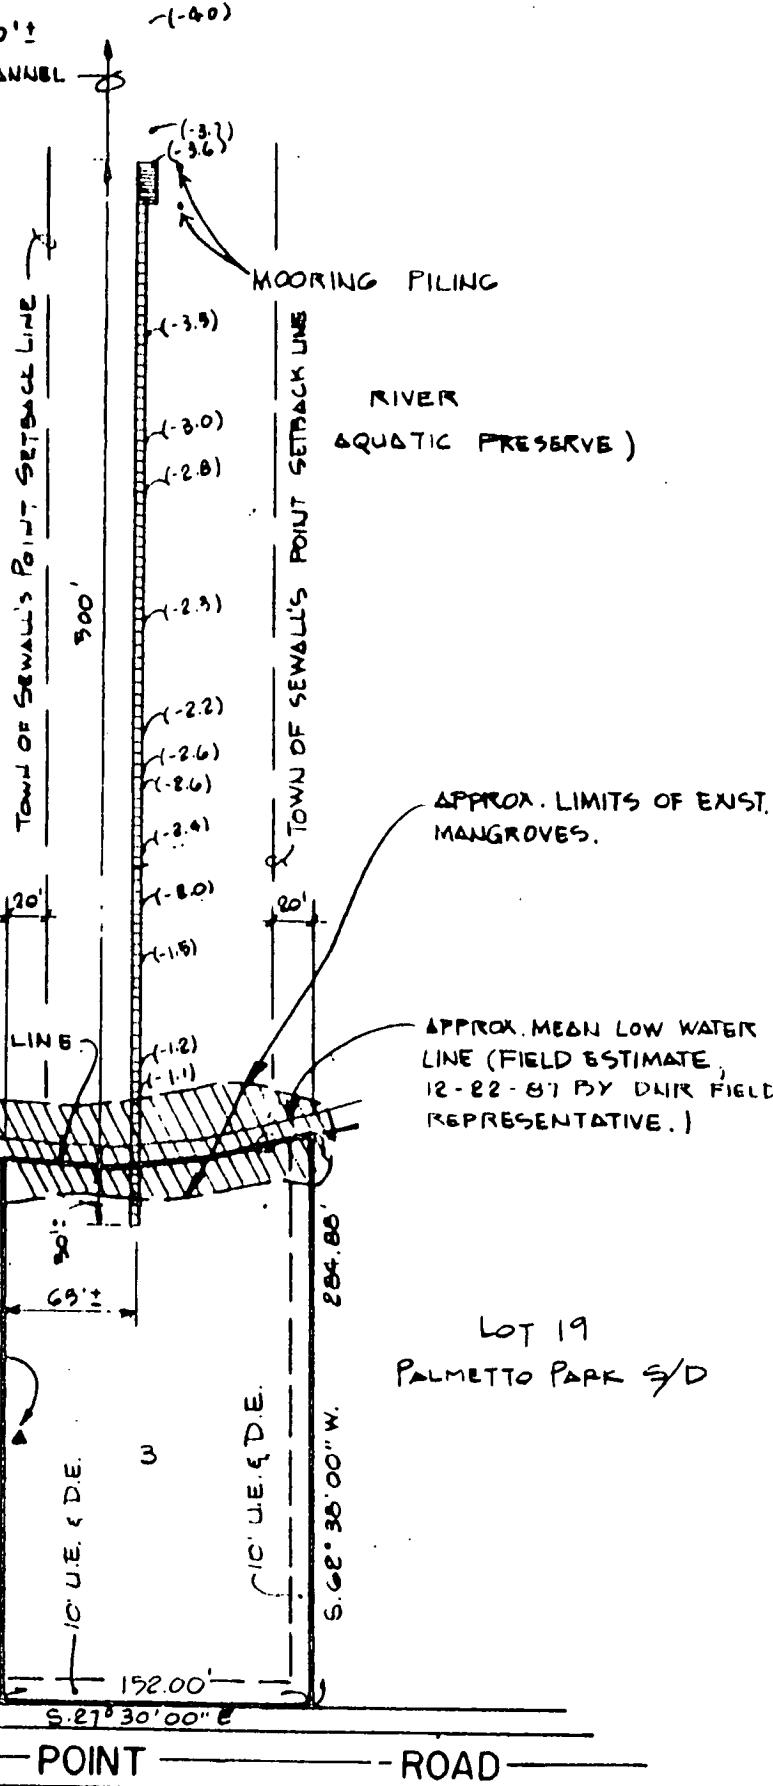 (-4.0)
0'±
ANNEL
(-3.7)
(-3.6)
MOORING PILING
TOWN OF SEWALL'S POINT SETBACK LINE
(-3.5)
TOWN OF SEWALL'S POINT SETBACK LINE
RIVER
AQUATIC PRESERVE)
(-3.0)
(-2.8)
300'
(-2.3)
(-2.2)
(-2.6)
(-2.6)
(-2.4)
APPROX. LIMITS OF EXIST.
MANGROVES.
20'
20'
(-1.5)
LINE
(-1.2)
(-1.1)
APPROX. MEAN LOW WATER
LINE (FIELD ESTIMATE,
12-22-87 BY DNR FIELD
REPRESENTATIVE.)
30'±
65'±
284.88'
S.62°38'00"W.
LOT 19
PALMETTO PARK S/D
3
10' U.E. & D.E.
10' U.E. & D.E.
152.00'
S.27°30'00"E
POINT ROAD